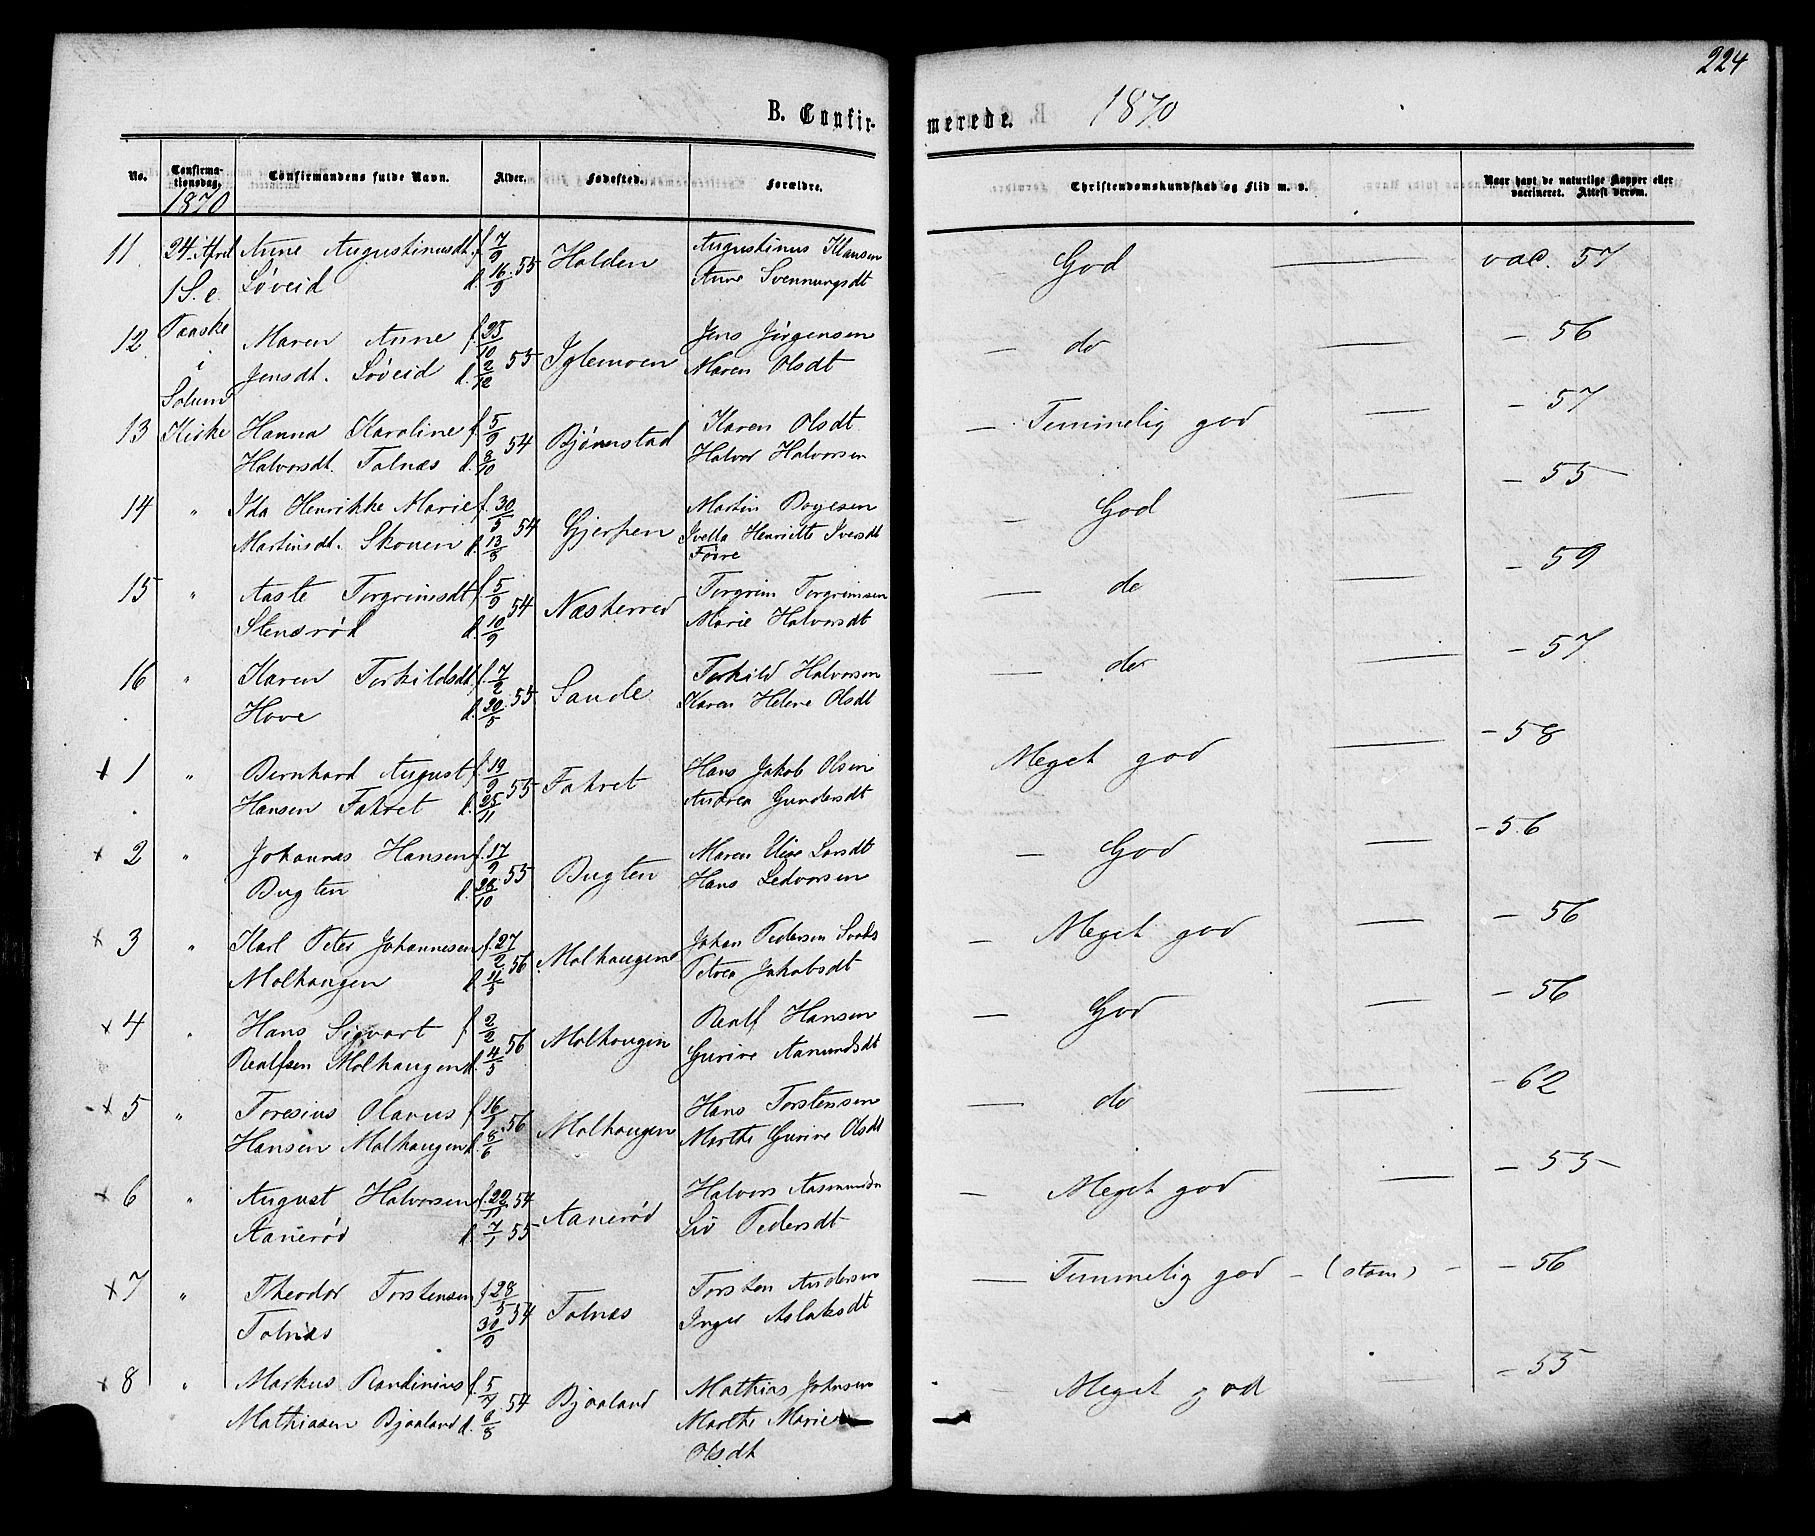 224
B. Confir-
merede.
1870
No.
Confirma-
tionsdag.
Confirmandens fulde Navn.
Alder.
Fødested.
Forældre.
Christendomskundskab og Flid m. v.
Naar havt de naturlige Kopper eller
vaccineret. Attest derom.
1870
11 24. April Anne Augustinusdt. f. 7/9 Holden Augustinus Klausen God — vac. 57
1 S. e. Løveid d. 16/9 55 Anne Svennungsdt
12 Paaske Maren Anne f. 25/10 55 Iglemoen Jens Jørgensen — do — — 56
i Jensdt. Løveid d. 2/12 Maren Olsdt
Solum
13 Kirke Hanna Karoline f. 5/9 54 Bjørnstad Karen Olsdt — Temmelig god — — 57
Halvorsdt. Tolnæs d. 8/10 Halvor Halvorsen
14 " Ida Henrikke Marie f. 30/5 54 Gjerpen Martin Boyesen — God — — 55
Martinsdt. Skouen d. 13/8 Henriette Iversdt
15 " Aaste Torgrimsdt f. 5/9 54 Næsherred Torgrim Torgrimsen — do — — 59
Stensrød d. 10/9 Marie Halvorsdt
16 " Karen Torkildsdt f. 7/2 55 Sande Torkild Halvorsen — do — — 57
Hove d. 20/5 Karen Helene Olsdt
x 1 " Bernhard August f. 19/9 55 Fakret Hans Jakob Olsen Meget god — — 58
Hansen Fakret d. 25/11 Andrea Gundersdt
x 2 " Johannes Hansen f. 17/9 55 Bugten Maren Larsdt — God — — 56
Bugten d. 28/10 Hans Ledvorsen
x 3 " Karl Peter Johannesen f. 27/2 56 Molhaugen Johan Pedersen — Meget god — — 56
Molhaugen d. 11/5 Petrea Jakobsdt
x 4 " Hans Sigvart f. 2/2 56 Molhaugen Realf Hansen — God — — 56
Realfsen Molhaugen d. 4/5 Gurine Aamundsdt
x 5 " Toresius Olavus f. 16/1 56 Molhaugen Hans Torstensen — do — — 62
Hansen Molhaugen d. 8/6 Marthe Gurine Olsdt
x 6 " August Halvorsen f. 22/11 54 Aanerød Halvors Aasmundsn — Meget god — — 55
Aanerød d. 7/1 55 Liv Pedersdt
x 7 " Theodor Torstensen f. 28/5 54 Tolnæs Torsten Andersen — Temmelig god — (stam) — — 56
Tolnæs 30/9 Inger Aslaksdt
x 8 " Markus Randinius f. 5/7 54 Bjaaland Mathias Johnsen — Meget god — — 55
Mathiasen Bjaaland d. 6/8 Marthe Marie
Olsdt